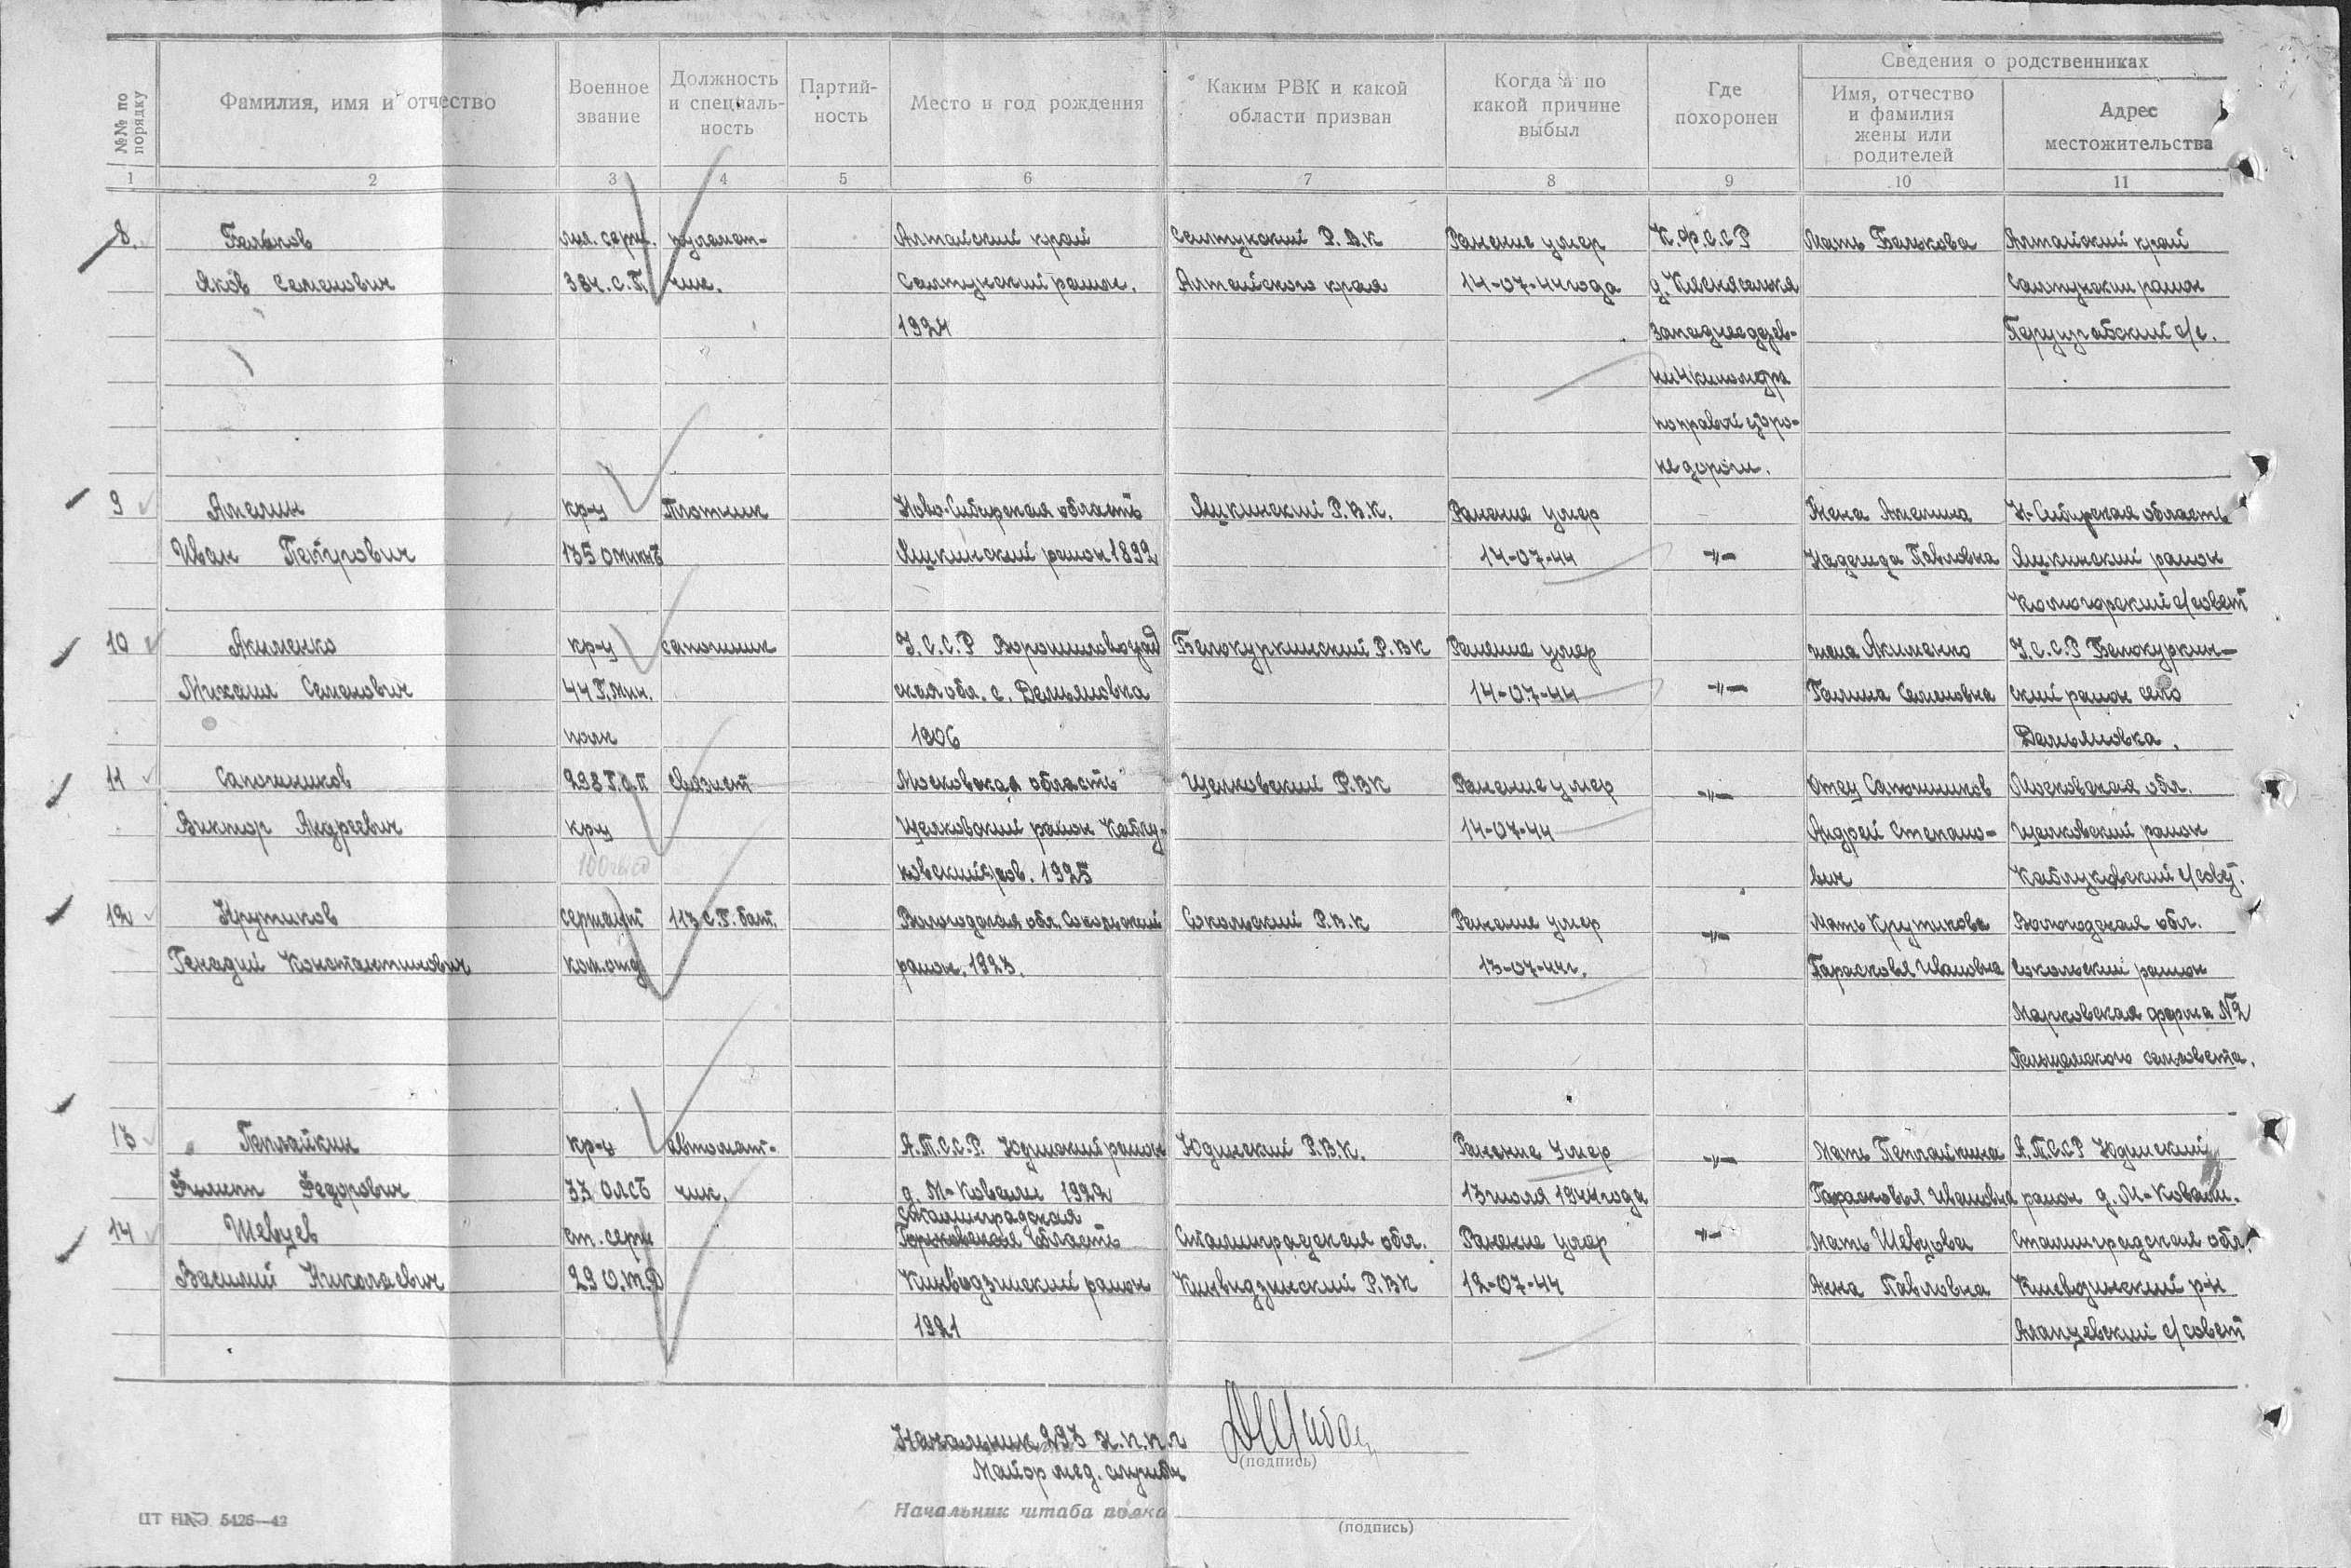 №№ по порядку
Фамилия, имя и отчество
Военное звание
Должность и специаль-ность
Партий-ность
Место и год рождения
Каким РВК и какой области призван
Когда и по какой причине выбыл
Где похоронен
Сведения о родственниках
Имя, отчество и фамилия жены или родителей
Адрес местожительства
1 2 3 4 5 6 7 8 9 10 11
8. Бельков мл. серж. пулемет- Алтайский край Солтунский Р.В.К Ранение умер К.Ф.С.С.Р Мать Балькова Алтайский край
Яков Семенович С.П. чик. Солтунский район. Алтайского края 14-07-44 года д. Солтунский район
1924 с/с.
4 километра
по правой
дороги.
9 Амелин кр-ц Плотник Ново-Сибирская область Яшкинский Р.В.К. Ранение умер Жена Амелина Н-Сибирская область
Иван Петрович 135 Яшкинский район 1892 14-07-44 -"- Надежда Павловна Яшкинский район
Колмогорский с/совет
10 Акименко кр-ц сапожник У.С.С.Р Ворошиловоград Белокуркинский Р.ВК Ранение умер жена Акименко У.С.С.Р Белокуркин-
Михаил Семенович 44 Г.Мин. ская обл. с. Демьяновка 14-07-44 -"- Галина Семеновна ский район село
полк 1906 Демьяновка.
11 Сапожников 298 Г.А.П Связист Московская область Щелковский Р.ВК Ранение умер -"- Отец Сапожников Московская обл.
Виктор Андреевич кр-ц Щелковский район Каблу- 14-07-44 Андрей Степано- Щелковский район
ковский с/сов. 1925 вич Каблуковский с/сов.
12 Крутиков сержант 113 с.Г. бат. Вологодская обл. Сокольский Сокольский Р.В.К Ранение умер -"- Мать Крутикова Вологодская обл.
Генадий Константинович ком.отд район. 1923. 13-07-44г. Парасковья Ивановна Сокольский район
Марковская ферма №2
сельсовета.
13 Пеплайкин кр-ц автомат- А.Т.С.С.Р. Юдинский район Юдинский Р.В.К. Ранение Умер -"- Мать Пеплайкина А.Т.С.С.Р Юдинский
Филипп Федорович 33 ОЛСБ чик. д. М-Ковали 1922 13 июля 1944 года Парасковья Ивановна район д. М-Ковали.
14 Шевцев ст. серж Сталинградская
Горьковская область Сталинградская обл. Ранение умер -"- Мать Шевцова Сталинградская обл.
Василий Николаевич 29 О.Т.Д район Р.ВК 12-07-44 Анна Павловна р-н
1921 с/совет
Начальник 293 х.п.п.г
(подпись)
Майор мед. службы
Начальник штаба полка
(подпись)
ЦТ НКО 5426—42